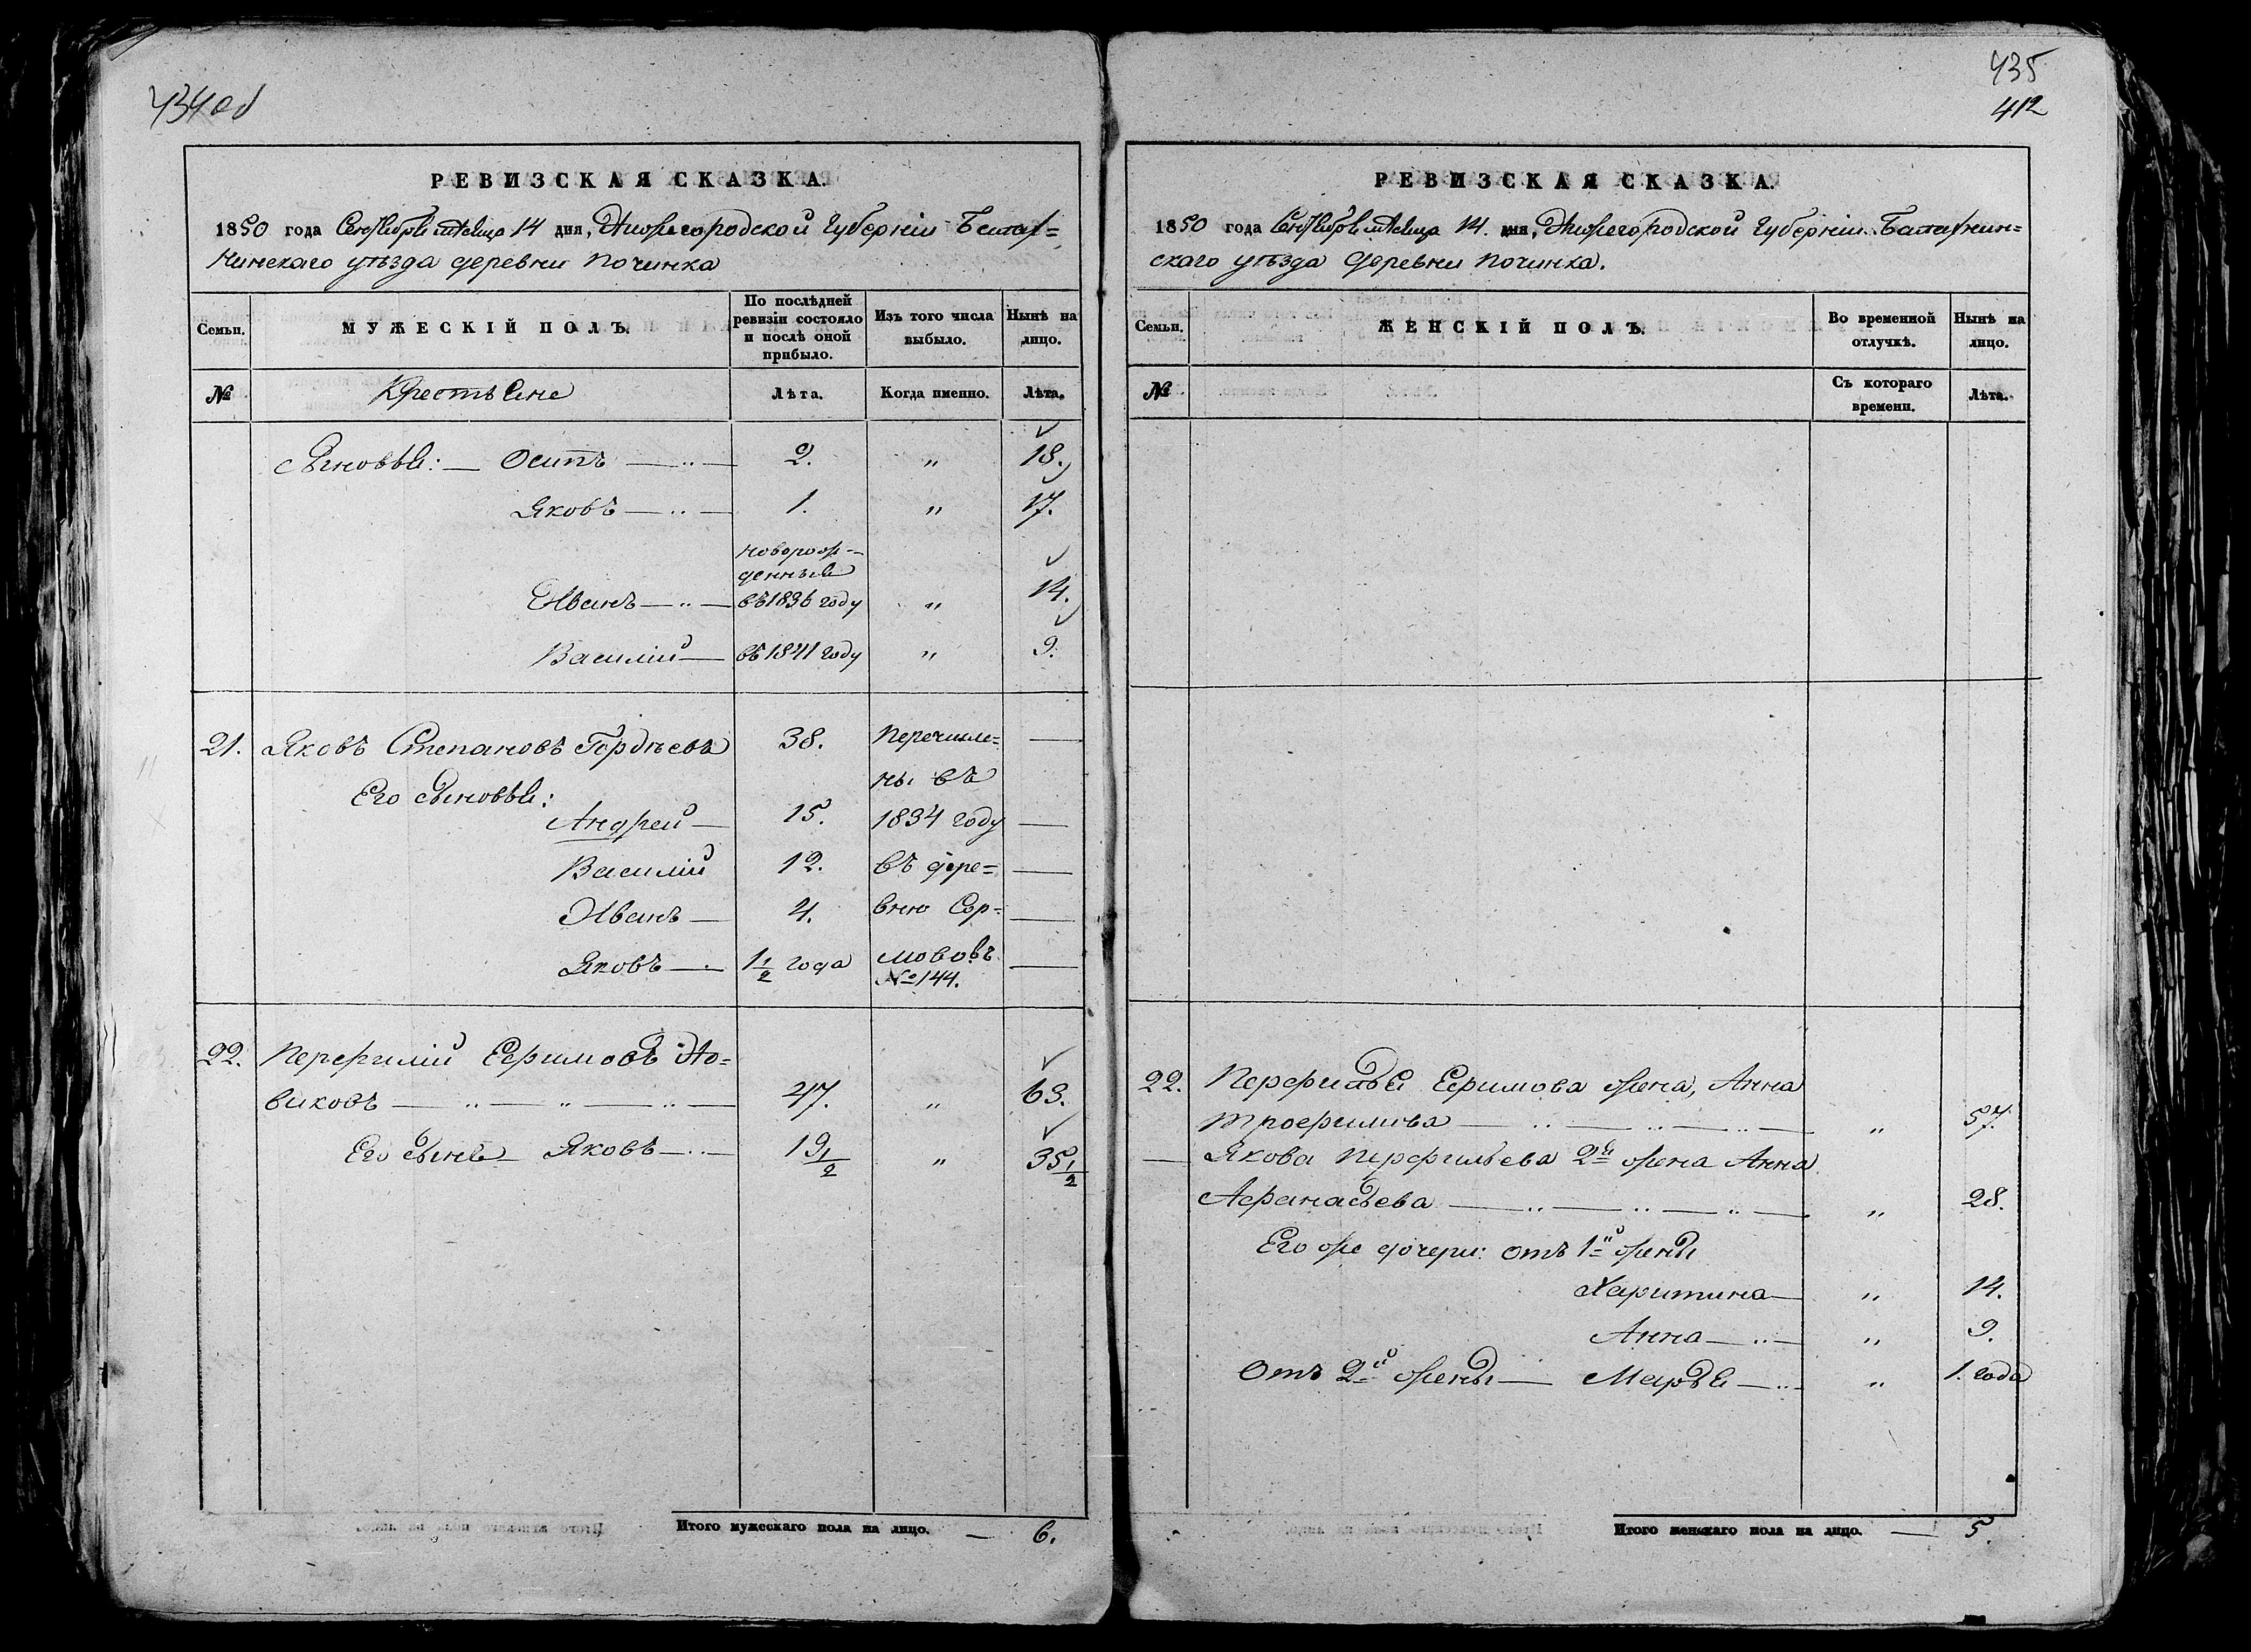 434об
РЕВИЗСКАЯ СКАЗКА.
1850 года Сентября мѣсяца 14 дня, Нижегородской Губерніи Балах=
нинскаго уѣзда деревни Починка
Семьи.
МУЖЕСКІЙ ПОЛЪ.
По послѣдней ревизіи состояло и послѣ оной прибыло.
Изъ того числа выбыло.
Нынѣ на лицо.
№
Крестьяне
Лѣта.
Когда именно.
Лѣта.
Сыновья: Осипъ 2. „ 18.
Яковъ 1. „ 17.
новорож=
денные
Иванъ въ 1836 году „ 14.
Василий въ 1841 году „ 9.
21. Яковъ Степановъ Гордѣевъ 38. Перечисле=
Его сыновья: ны въ
Андрей 15. 1834 году
Василій 12. въ дере=
Иванъ 4. вню Сор=
Яковъ 1 1/2 года мововъ
№ 144.
22. Перфилій Ефимовъ Но=
виковъ 47. „ 63.
Его сынъ Яковъ 19 1/2 „ 35 1/2
Итого мужескаго пола на лицо. 6.
435
412
РЕВИЗСКАЯ СКАЗКА.
1850 года Сентября мѣсяца 14. дня, Нижегородской Губерніи Балахнин=
скаго уѣзда деревни Починка.
Семьи.
ЖЕНСКІЙ ПОЛЪ.
Во временной отлучкѣ.
Нынѣ на лицо.
№
Съ котораго времени.
Лѣта.
22. Перфилья Ефимова жена, Анна
Трофимова „ 57.
Якова Перфильева 2я жена Анна
Афанасьева „ 28.
Его же дочери: отъ 1й жены
Харитина „ 14.
Анна „ 9.
Отъ 2й жены Марья „ 1. года
Итого женскаго пола на лицо. 5.